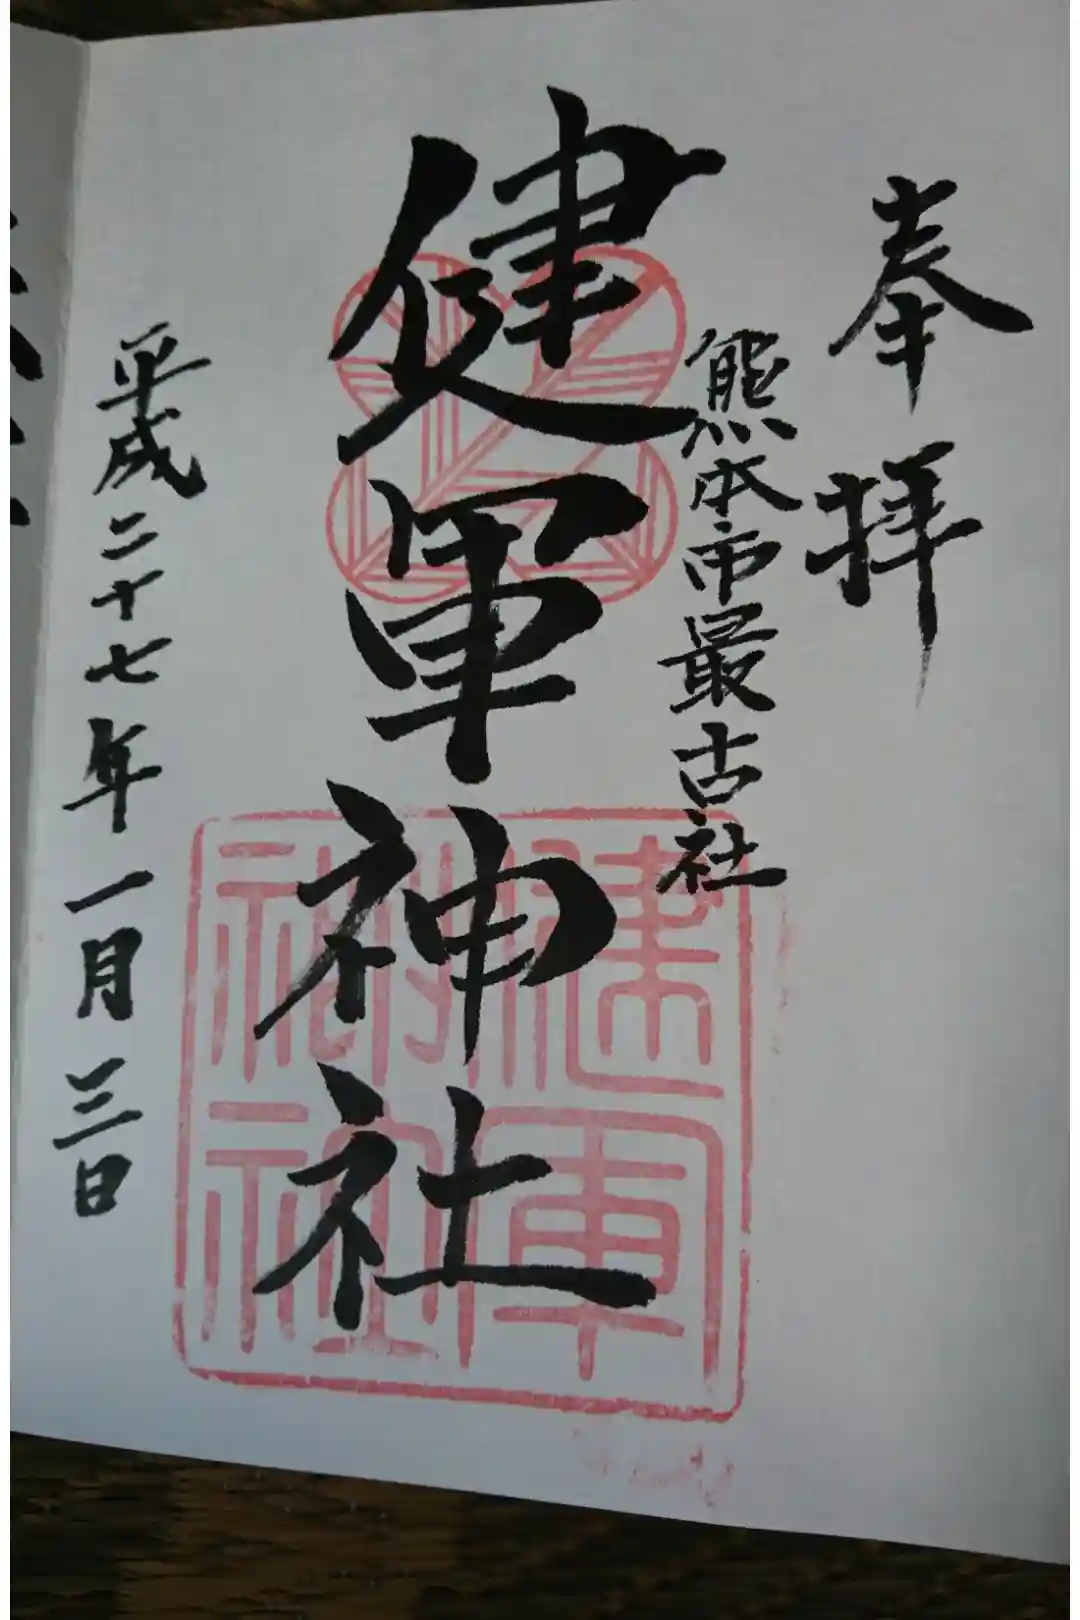 奉拝
熊本市最古社
健軍神社
健軍神社
平成二十七年一月三日